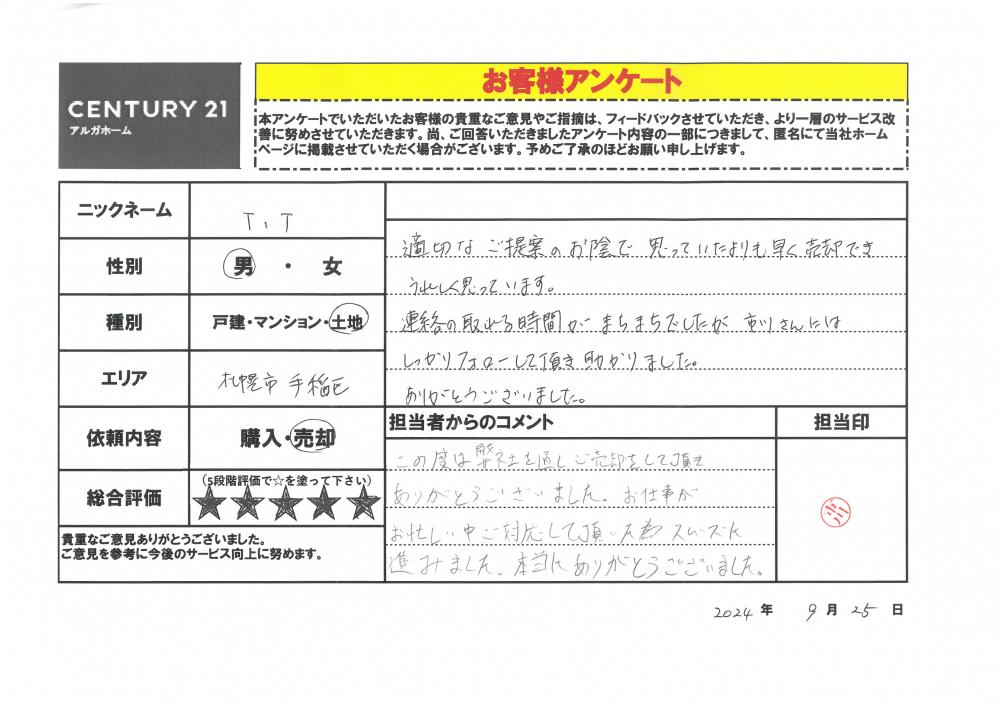 CENTURY 21
アルガホーム
お客様アンケート
本アンケートでいただいたお客様の貴重なご意見やご指摘は、フィードバックさせていただき、より一層のサービス改
善に努めさせていただきます。尚、ご回答いただきましたアンケート内容の一部につきまして、匿名にて当社ホーム
ページに掲載させていただく場合がございます。予めご了承のほどお願い申し上げます。
ニックネーム
T.T
性別
男・女
種別
戸建・マンション・土地
エリア
札幌市 手稲区
依頼内容
購入・売却
総合評価
(5段階評価で☆を塗って下さい)
★★★★★
貴重なご意見ありがとうございました。
ご意見を参考に今後のサービス向上に努めます。
適切なご提案のお陰で思っていたよりも早く売却でき
うれしく思っています。
連絡の取れる時間がまちまちでしたが 市川さんには
しっかりフォローして頂き助かりました。
ありがとうございました。
担当者からのコメント
この度は弊社を通しご売却をして頂き
ありがとうございました。お仕事が
お忙しい中ご対応して頂いた為スムーズに
進みました。本当にありがとうございました。
担当印
2024年 9月 25日